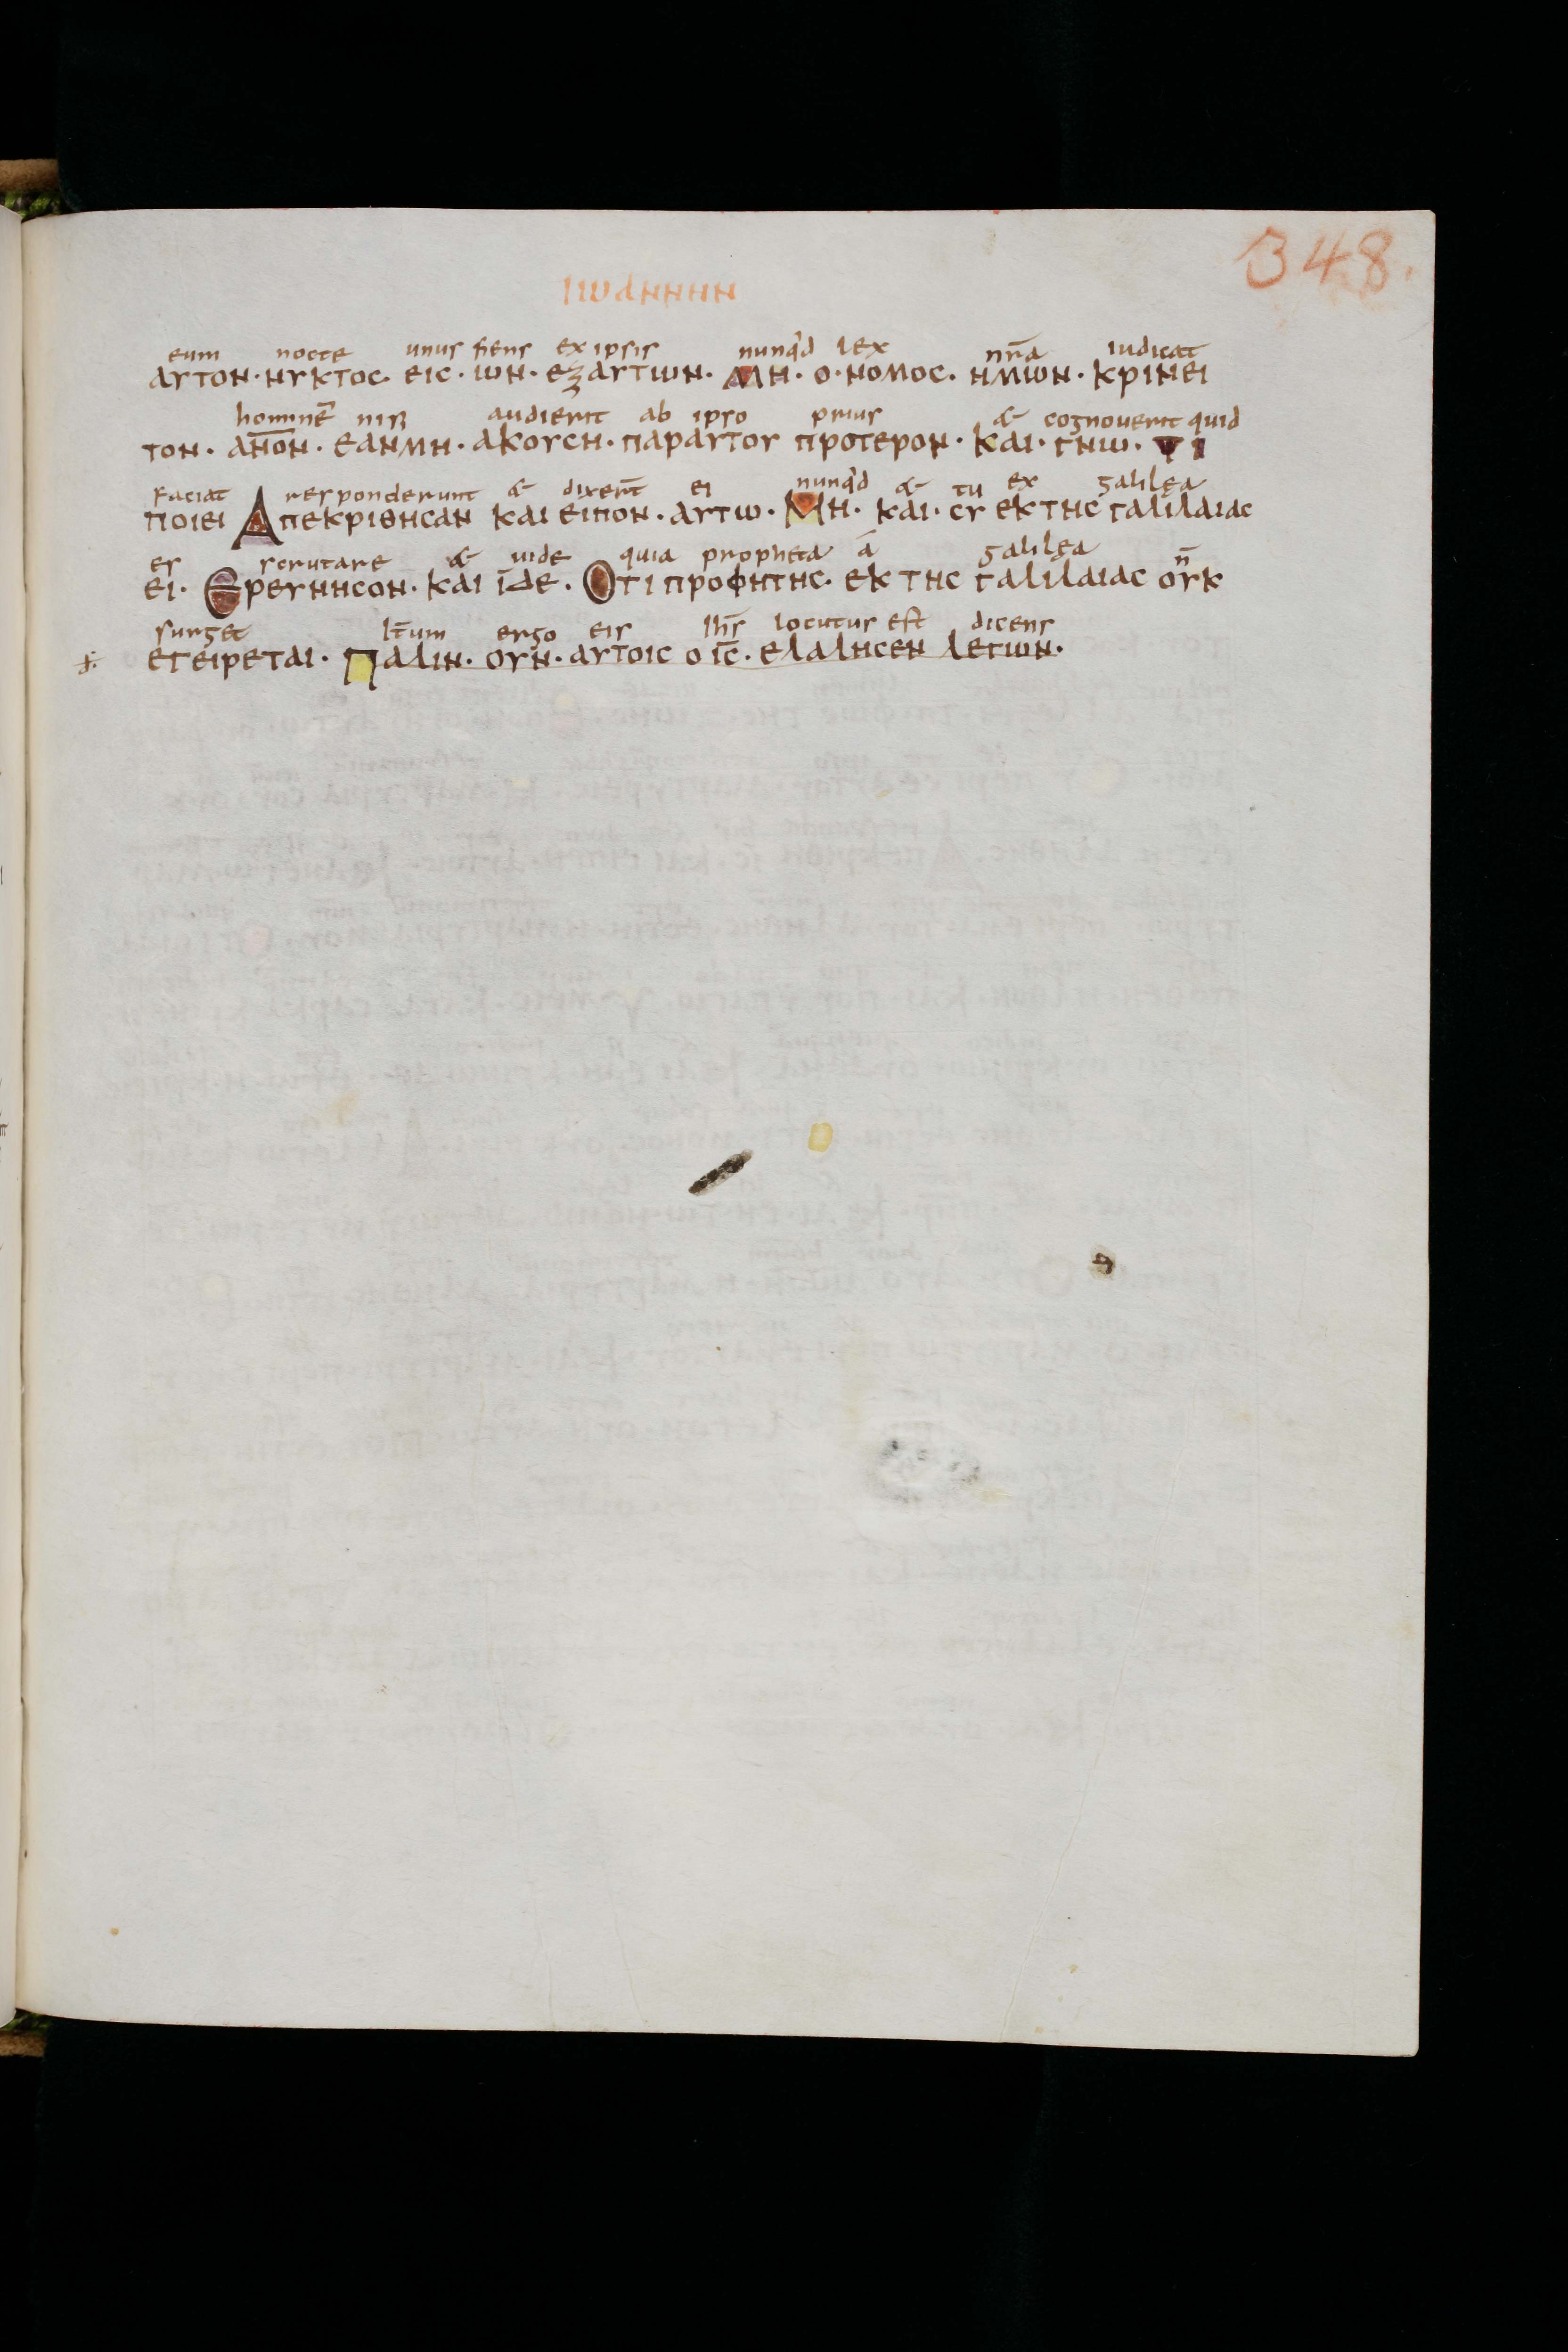 348.
ΙΩΑΝΝΗΝ
eum nocte unus fiens ex ipsis nunqd lex nr̄a iudicat
ΑΥΤΟΝ · ΝΥΚΤΟC · ΕΙC · ΙΩΝ · ΕΞ ΑΥΤΙΩΝ · ΜΗ · Ο · ΝΟΜΟC · ΗΜΙΩΝ · ΚΡΙΝΕΙ
hominē nisi audierit ab ipso prius & cognouerit quid
ΤΟΝ · ΑΝ̅Ο̅Ν · ΕΑΝΜΗ · ΑΚΟΥCΗ · ΠΑΡΑΥΤΟΥ ΠΡΟΤΕΡΟΝ · ΚΑΙ · ΓΝΩ · ΤΙ
faciat responderunt & dixer̄t ei nunqd & tu ex galilęa
ΠΟΙΕΙ ΑΠΕΚΡΙΘΗCΑΝ ΚΑΙ ΕΙΠΟΝ · ΑΥΤΩ · ΜΗ · ΚΑΙ · CΥ ΕΚ ΤΗC ΓΑΛΙΛΑΙΑC
es scrutare & uide quia propheta á galilęa n̄
ΕΙ · ΕΡΕΥΝΗCΟΝ · ΚΑΙ ΙΔΕ · ΟΤΙ ΠΡΟΦΗΤΗC · ΕΚ ΤΗC ΓΑΛΙΛΑΙΑC ΟΥΚ
surget it̄um ergo eis ih̄s locutus est dicens
ΕΓΕΙΡΕΤΑΙ · ΠΑΛΙΝ · ΟΥΝ · ΑΥΤΟΙC Ο Ι̅C̅ · ΕΛΑΛΗCΕΝ ΛΕΓΙΩΝ ·